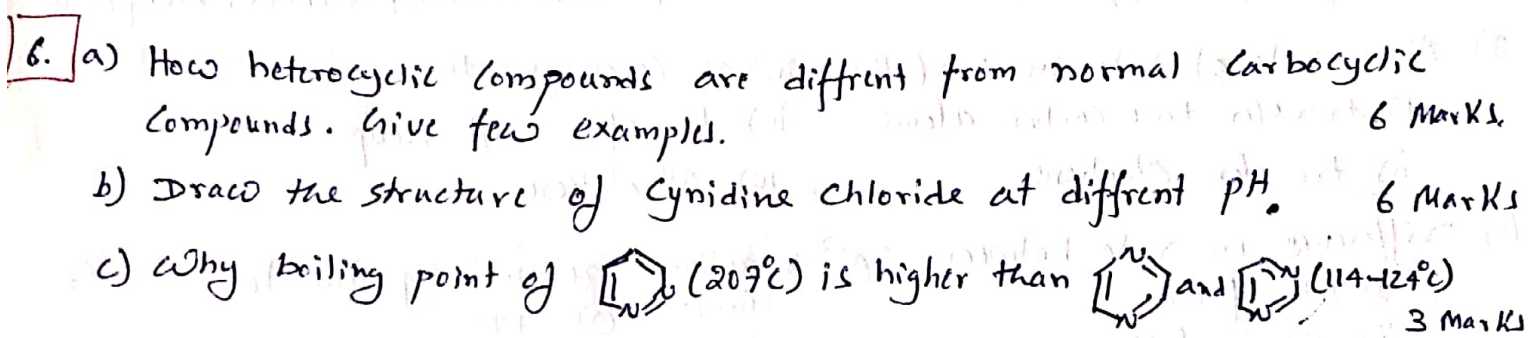 6. a) How heterocyclic compounds are diffrent from normal carbocyclic
compounds. Give few examples. 6 Marks.
b) Draw the structure of Cynidine chloride at diffrent pH. 6 Marks
c) Why boiling point of N N (207°C) is higher than N N and N N (114-124°C)
3 Marks